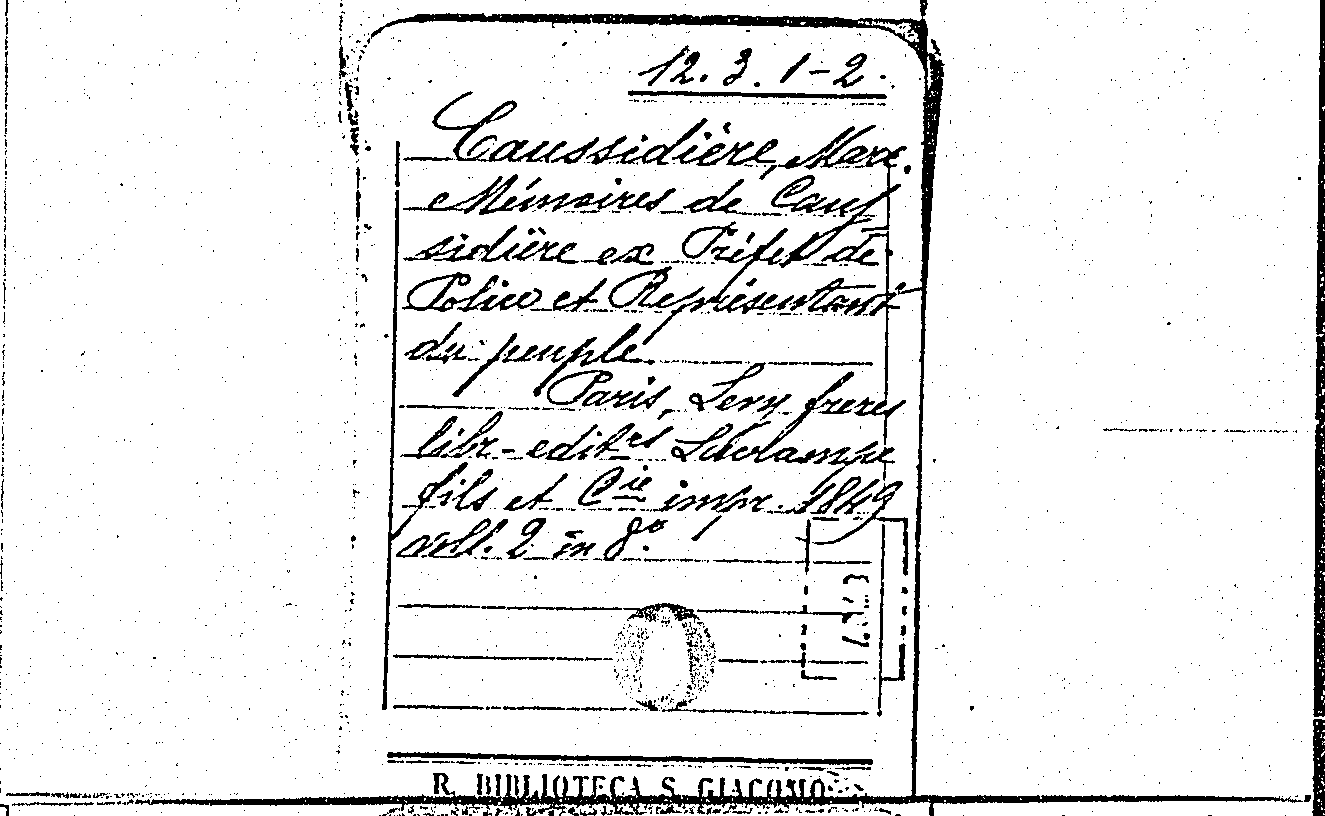 12. 3. 1-2.
Caussidière, Marc.
Mémoires de Caus=
sidière ex Préfet de
Police et Représentant
du peuple.
Paris, Levy freres
libr-edit.rs
fils et Cie impr. 1849
voll. 2 in 8.°
R. BIBLIOTECA S. GIACOMO